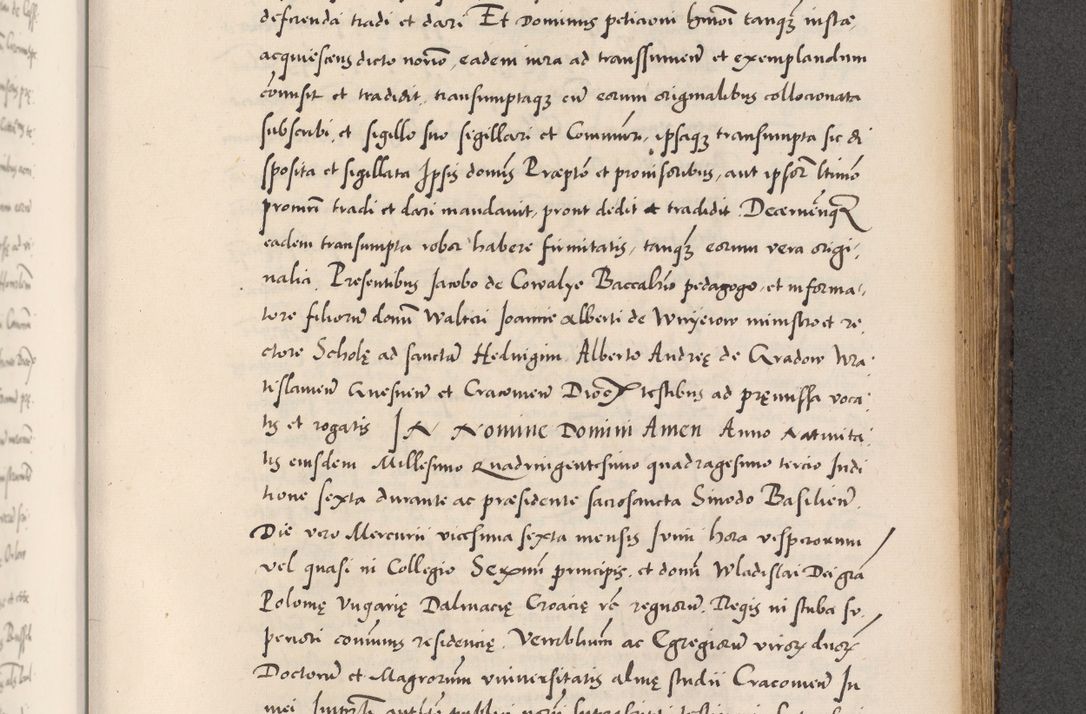 deferenda tradi et dari Et Dominus peticioni hmōi tanqȝ iustæ
acquiescens dicto notrio, eadem iura ad transsumen̄ et exemplandum
cōmisit et tradidit, transumptaqȝ cū eorum originalibus collocionata
subscribi, et sigillo suo sigillari et Cōmuniri, ipsaqȝ transumpta sic di
sposita et sigillata Ipsis dominis Præpto et prouisoribus, aut ipsorꝝ ltimo
procuri tradi et dari mandauit, prout dedit et tradidit. Decernēnqꝫ
eadem transumpta robor habere firmitatis, tanqȝ eorum vera origi,
nalia. Presentibus Iacobo de Cowalye Baccalrio pedagogo, et informa,
tore filiorū domī Walteri Ioanne Alberti de Wnyeiow ministro et re,
ctore Scholę ad sanctā Heduigim, Alberto Andreę de Gradow Wra,
tislauien̄ Gnesnen̄ et Cracouien̄ Dioeꝝ testibus ad pręmissa voca,
tis et rogatis IN Nomine Domini Amen Anno Natiuita,
tis eiusdem Millesimo Quadringentesimo quadragesimo tercio Indi
tione sexta durante ac præsidente sacrosancta Sinodo Basilien̄.
Die vero Mercurii vicesima sexta mensis Iunii hora vesperorum
vel quasi in Collegio Sermi principis, et domī Wladislai Dei grā
Polonię Vngarię Dalmacię Croacię rc̄ regnorū. Regis in stuba su,
periori cōmunis residencię. Venrblium ac Egregiorū virorꝝ duorꝝ
Doctorū et Magrorum vniuersitatis almę studii Cracouien̄ In